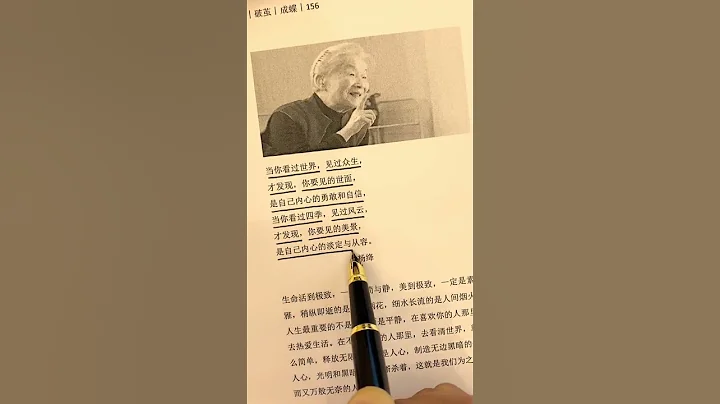 | 破茧 | 成蝶 | 156
当你看过世界，见过众生，
才发现，你要见的世面，
是自己内心的勇敢和自信，
当你看过四季，见过风云，
才发现，你要见的美景，
是自己内心的淡定与从容。
杨绛
生命活到极致，一 与静，美到极致，一定是素
雅，稍纵即逝的是 花，细水长流的是人间烟火
人生最重要的不是 是平静，在喜欢你的人那里
去热爱生活。在不 人那里，去看清世界，
么简单，释放无限 是人心，制造无边黑暗的
人心，光明和黑暗 着，这就是我们为之
而又万般无奈的人